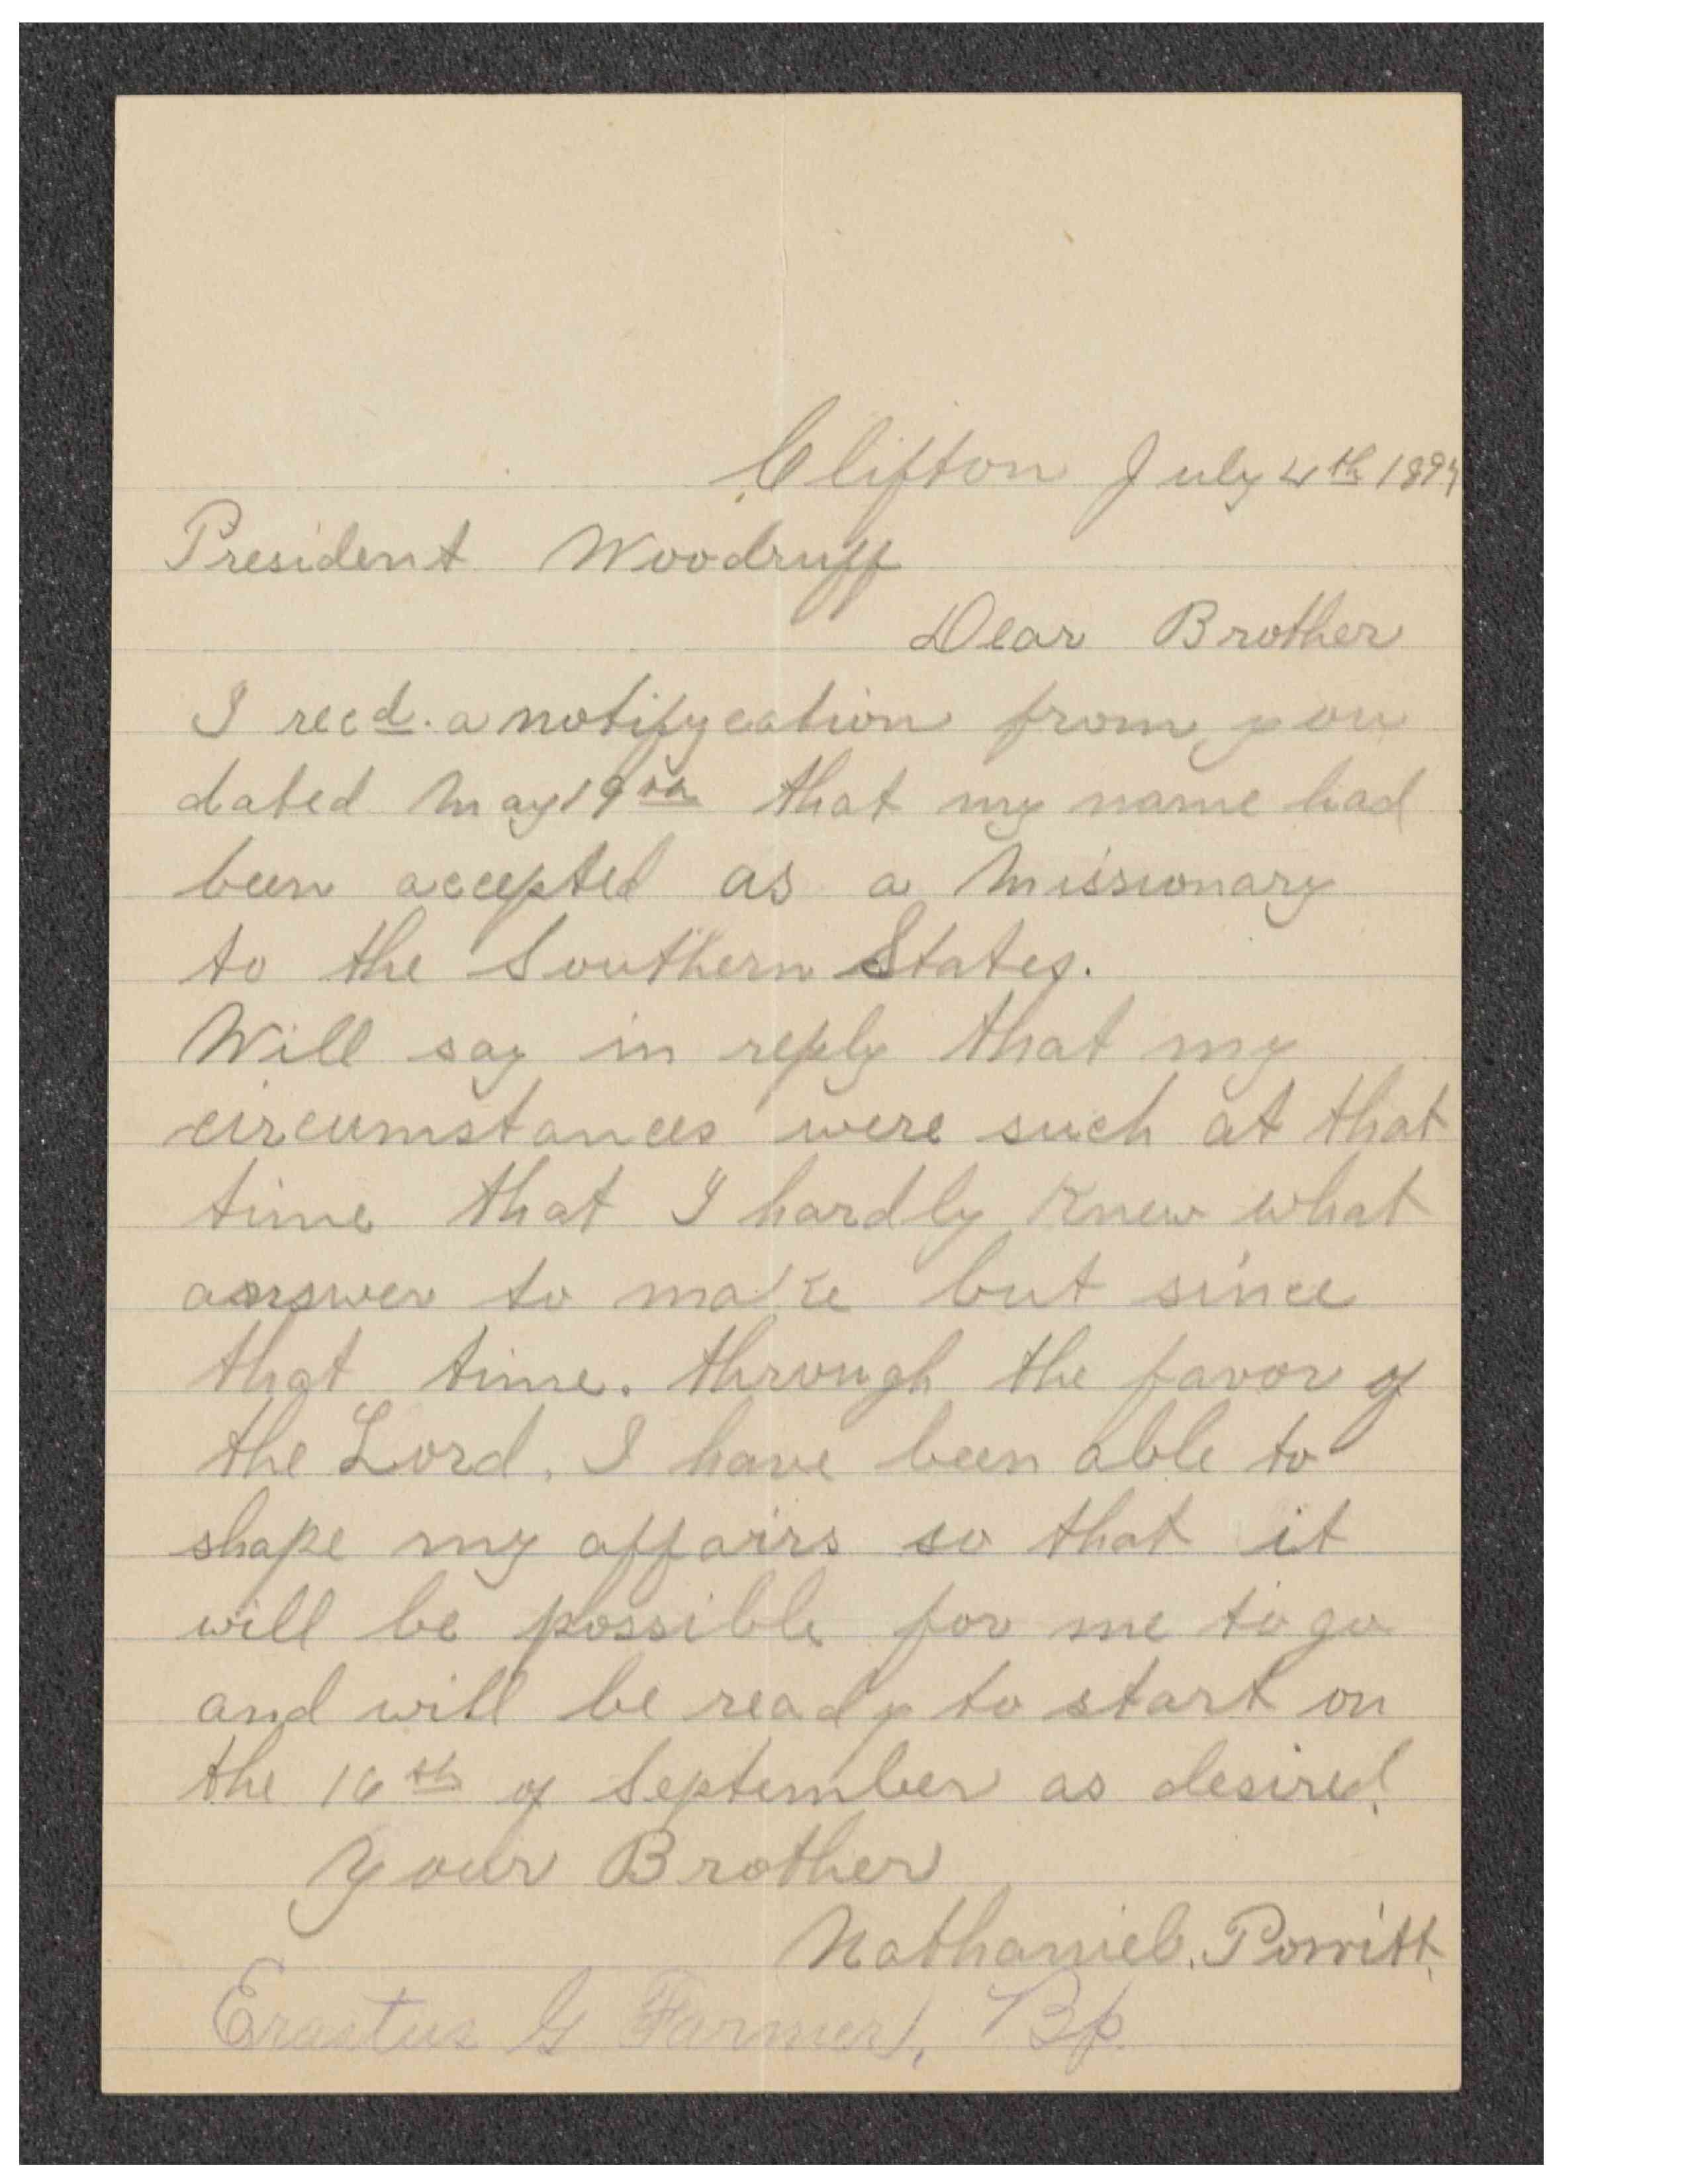 Clifton July 4th 1894
President Woodruff
Dear Brother
I recd. a notifycation from you
dated May 19th that my name had
been accepted as a Missionary
to the Southern States.
Will say in reply that my
circumstances were such at that
time that I hardly knew what
answer to make but since
that time. through the favor of
the Lord, I have been able to
shape my affairs so that it
will be possible for me to go
and will be ready to start on
the 16th of September as desired.
Your Brother
Nathaniel. Porritt.
Erastus G Farmer, Bp.